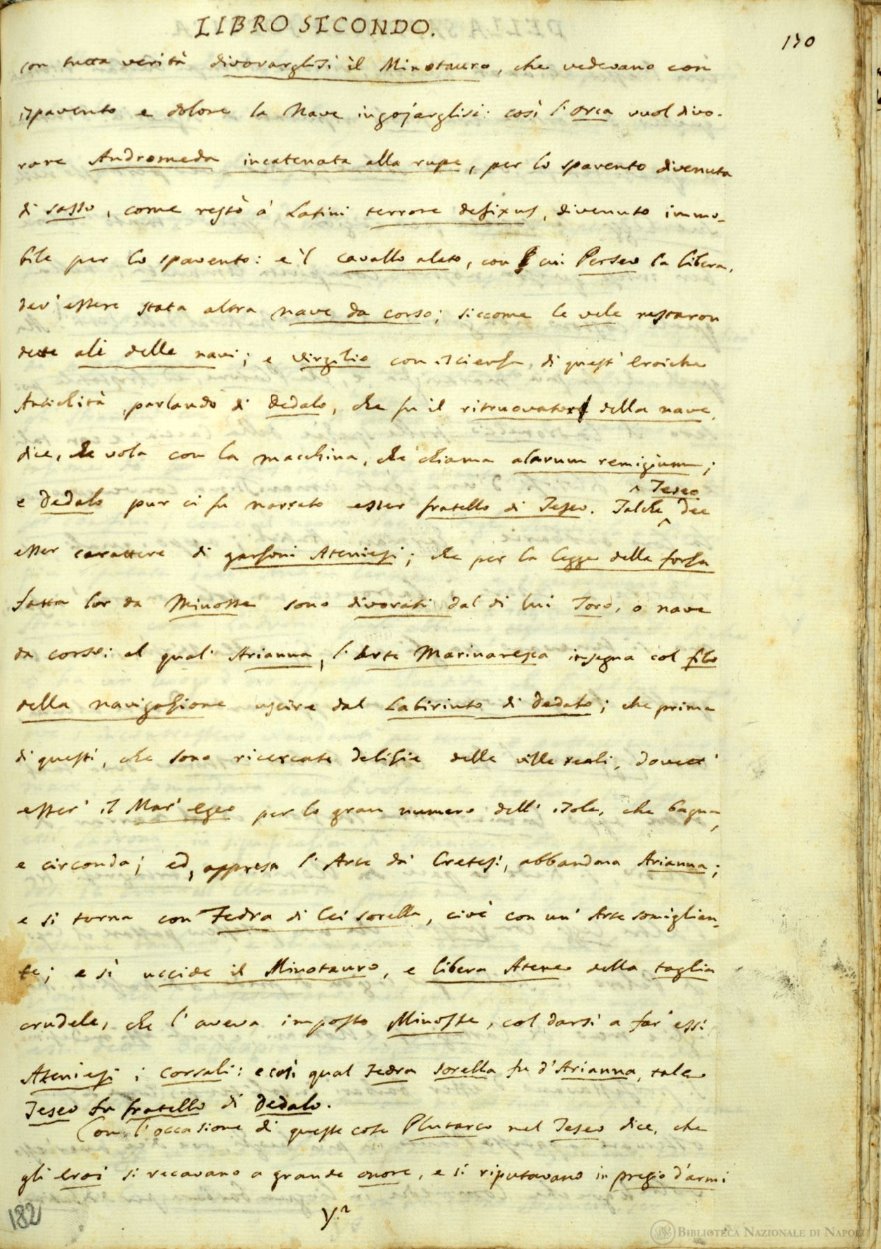 LIBRO SECONDO.
130
con tutta verità divorarglisi il Minotauro, che vedevano con
ispavento e dolore la Nave ingojarglisi: così l'orca vuol divo-
rare Andromeda incatenata alla rupe, per lo spavento divenuta
di sasso, come restò a' Latini terrore defixus, divenuto immo-
bile per lo spavento: e 'l cavallo alato, con cui Perseo la libera,
dev' essere stata altra nave da corso; siccome le vele restaron
dette ali delle navi; e Virgilio con iscienza, di quest' Eroiche
Antichità, parlando di Dedalo, che fu il ritruovatore della nave,
dice, che vola con la macchina, che chiama alarum remigium;
e Dedalo pur ci fu narrato esser fratello di Teseo. Talchè ^ Teseo dee
esser carattere di garzoni Ateniesi; che per la legge della forza
fatta lor da Minosse sono divorati dal di lui Toro, o nave
da corso: al qual' Arianna, l'Arte Marinaresca insegna col filo
della navigazione uscire dal Labirinto di Dedalo; che prima
di questi, che sono ricercate delizie delle ville reali, dovett'
esser' il Mar' Egeo per lo gran numero dell' isole, che bagna,
e circonda; ed, appresa l'Arte da' Cretesi, abbandona Arianna;
e si torna con Fedra di lei sorella, cioè con un' Arte somiglian-
te; e sì uccide il Minotauro, e libera Atene della taglia
crudele, che l'aveva imposto Minosse, col darsi a far' essi
Ateniesi i corsali: e così qual Fedra sorella fu d'Arianna, tale
Teseo fu fratello di Dedalo.
Con l'occasione di queste cose Plutarco nel Teseo dice, che
gli Eroi si recavano a grande onore, e si riputavano in pregio d'armi
182
BIBLIOTECA NAZIONALE DI NAPOLI